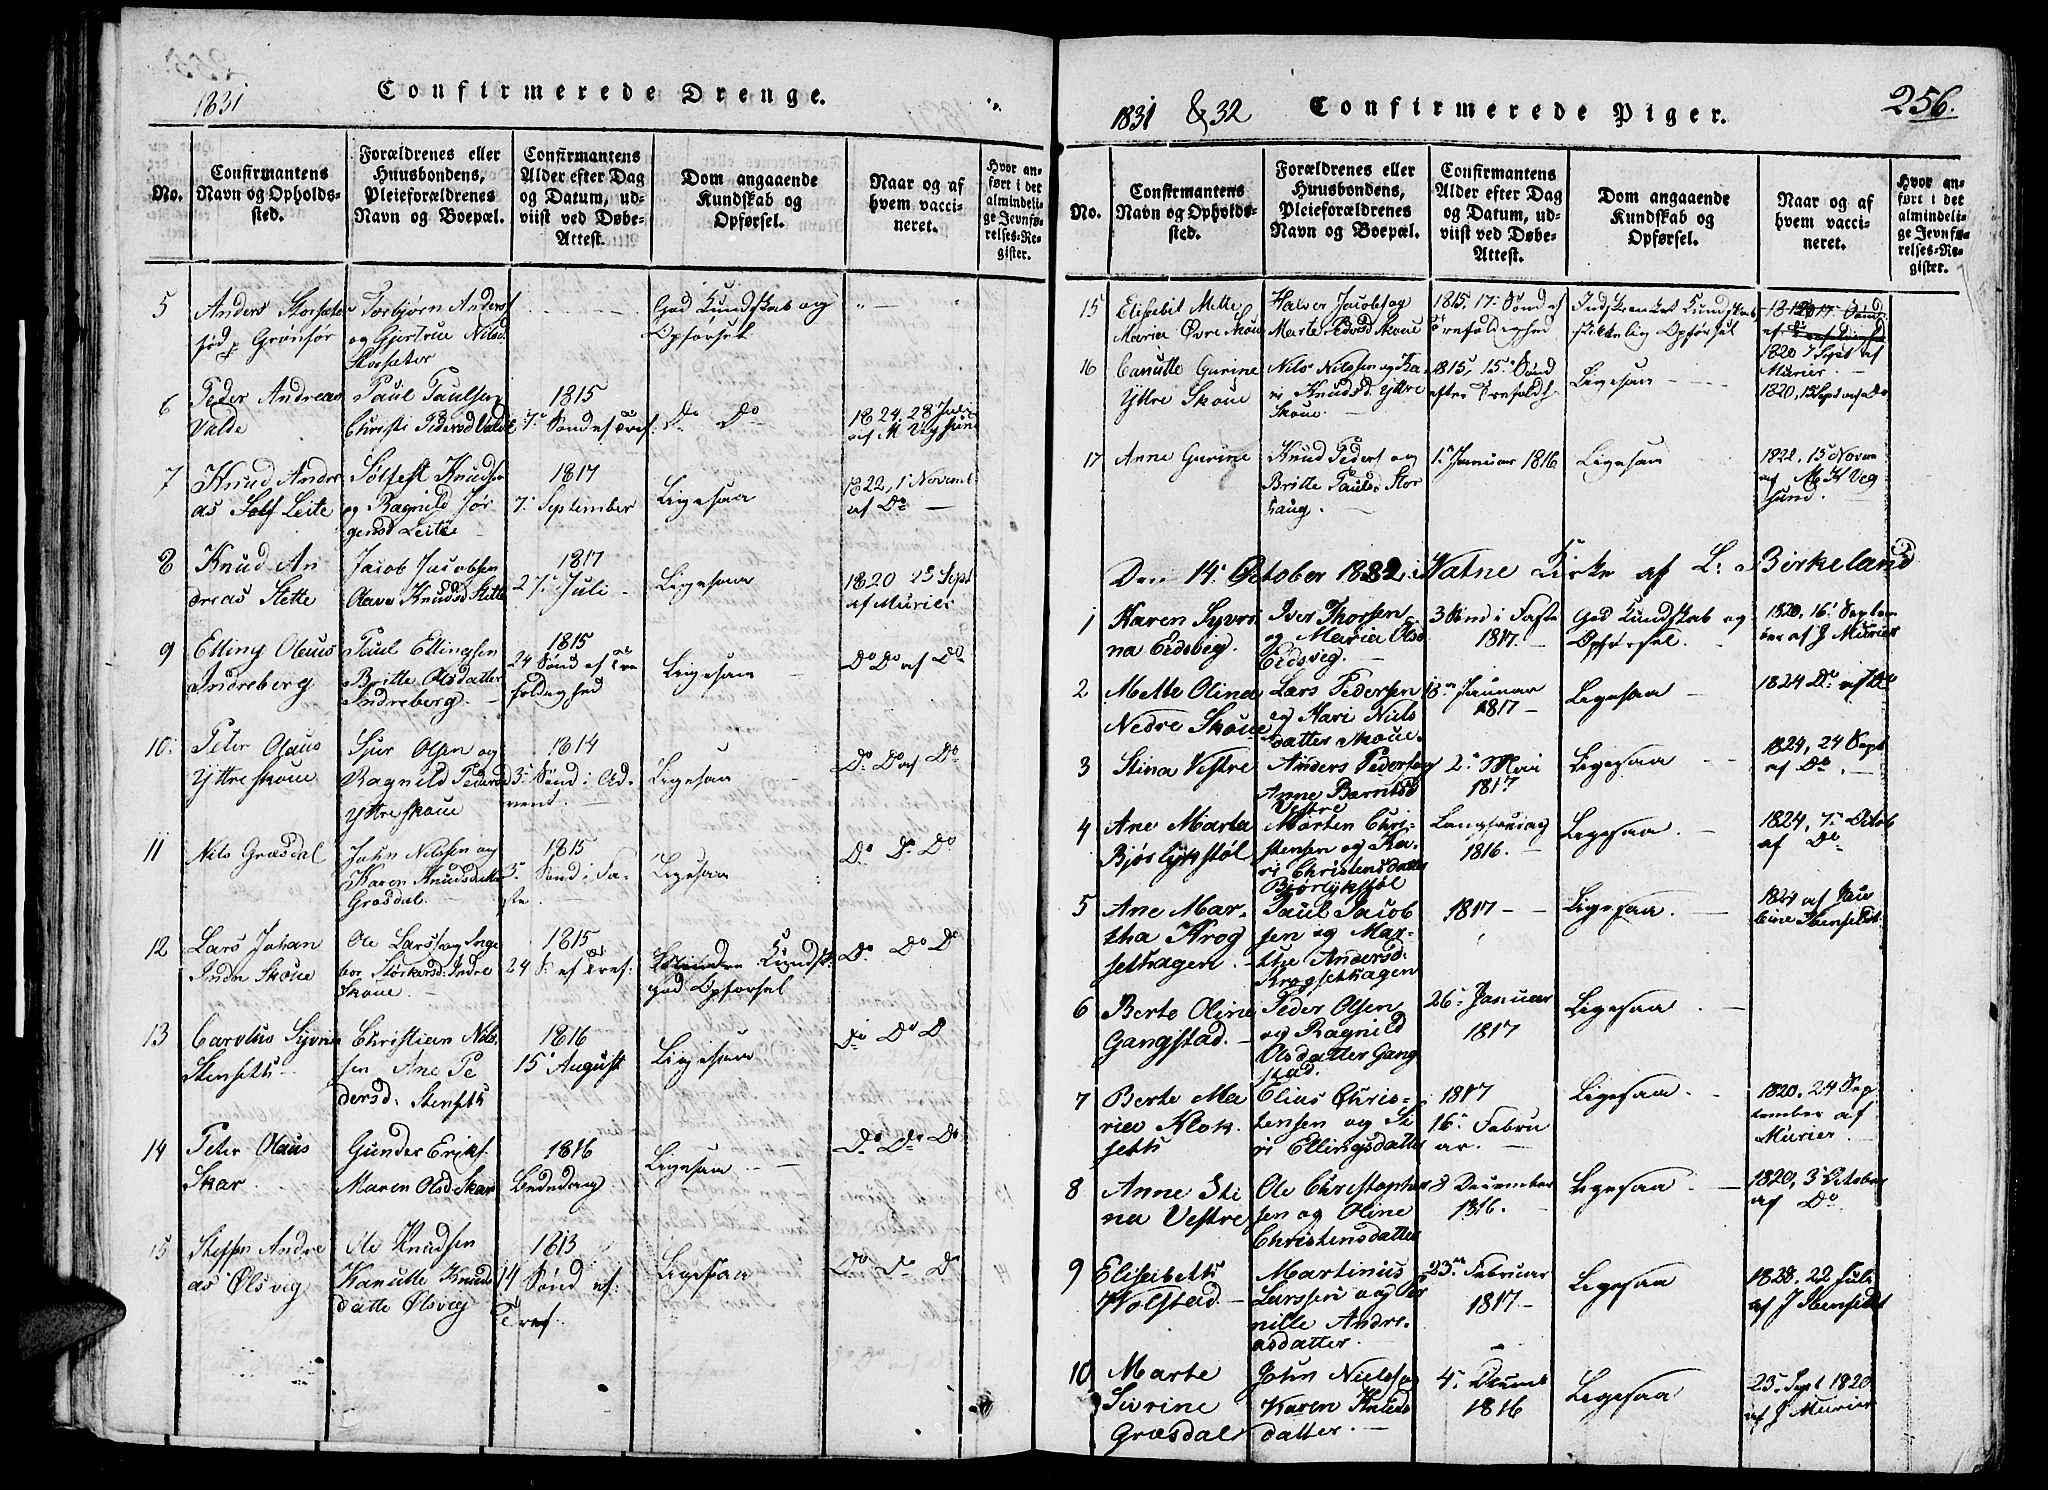 1831
Confirmerede Drenge.
No.
Confirmantens
Navn og Opholds-
sted.
Forældrenes eller
Huusbondens,
Pleieforældrenes
Navn og Boepæl.
Confirmantens
Alder efter Dag
og Datum, ud-
viist ved Døbe-
Attest.
Dom angaaende
Kundskab og
Opførsel.
Naar og af
hvem vacci-
neret.
Hvor an-
ført i det
almindeli-
ge Jevnfø-
relses-Re-
gister.
5
Anders Storsæter
fød p Grønför
Torbjørn Anders
og Gjertrue Nilsd
Storsæter
God Kundskab og
Opførsel
6
Peder Andreas
Valde
Paul Paulsen
Christi Pedersd Valde
1815
7e Sønd ef Tref:
Do Do
1824, 28 Juli
af M Vegsund
7
Knud Andre
as Leite
Knudsen
og Ragnild Jør
gensd Leite
1817
7e September
Ligesaa
1822, 1 Novemb
af Do
8
Knud An
dreas Slette
Jacob Jacobsen
Olava Knudsd Slette
1817
27e Juli
Ligesaa
1820 23 Sept
af Murier
9
Elling Olaus
Indreberg
Paul Ellingsen
Britte Olsdatter
Indreberg.
1815
24 Sønd ef Tre
foldighed
Ligesaa
Do Do af Do
10.
Peter Olaus
Yttre Skoue
Siur Olsen og
Ragnild Pedersd
Yttre Skoue
1814
3e Sønd i Ad-
vent.
Ligesaa
Do Do af Do
11
Nils Græsdal
John Nilssen og
Karen Knudsdatter
Græsdal.
1815
3e Sønd i Fa-
ste.
Ligesaa
Do Do Do
12
Lars Johan
Indre Skoue
Ole Larss og Inge
bor Størkersd: Indre
Skoue.
1815
24 S: ef Tref:
Mindre Kundsk.
god Opførsel
Do Do Do
13
Carolus Syvrin
Stenseth
Christian Nils-
sen Ane Pe
dersd: Stenseth
1816
15e August
Ligesaa
Do Do D
14
Peter Olaus
Skar.
Gunder Eriks.
Maren Olsd Skar
1816
Bededag
Ligesaa
Do Do Do
15
Steffen Andre
as Ølsvig
Ole Knudsen
Kanutte Knuds
datte Ølsvig
1813
14 Sønd ef:
Tref.
Ligesaa
Do Do Do
1831 & 32
Confirmerede Piger.
256.
No.
Confirmantens
Navn og Opholds-
sted.
Forældrenes eller
Huusbondens,
Pleieforældrenes
Navn og Boepæl.
Confirmantens
Alder efter Dag
og Datum, ud-
viist ved Døbe-
Attest.
Dom angaaende
Kundskab og
Opførsel.
Naar og af
hvem vacci-
neret.
Hvor an-
ført i det
almindeli-
ge Jevnfø-
relses-Re-
gister.
15
Elisabet Mette
Maria Øvre Skoue
Halvor Jacobs og
Marte Skoue
1815. 17e Sønd ef
Trefoldighed
Indskrænket Kundskab
skikkelig Opførsel
1820 7 Sept af
Murier.
16
Canutte Gurine
Yttre Skoue
Nils Nilssen og Ka-
ri Knudsd. Yttre
Skoue.
1815, 15e Sønd
efter Trefoldh
Ligesaa
1820, 13 Sept af do
17
Anne Gurine
Knud Peders og
Britte Paulsd Stor
haug.
1e Januar 1816
Ligesaa
1822, 15 Novem
af M K Veg
sund.
Den 14e October 1832 i Vatne Kirke af L: Birkeland
1
Karen Syvri
na Eidsvig.
Iver Thorsen
og Maria Olsd
Eidsvig.
3 Sønd i Faste
1817.
God Kundskab og
Opførsel.
1820, 16e Septem
ber af J Murier
2
Mette Olina
Nedre Skoue
Lars Pedersen
og Kari Niels
datter Skoue.
Januar
1817
Ligesaa
1824 Do af Do
3
Stina Vestre
Anders Peders og
Anne Barntsd
Vestre
2e Mai
1817
Ligesaa
1824, 24 Sept
af Do.
4
Ane Marta
Bjørlykstøl
Morten Chri-
stensen og Ka-
ri Christensdatter
Bjørlykstøl
Langfredag
1816.
Ligesaa.
1824, 7e Octob
af Do
5
Ane Mar-
tha Krog
sethagen.
Paul Jacob
sen og Mar-
the Andersd:
Krogsethagen
1817
Ligesaa.
1824 af
Ibenfeldt
6
Berte Oline
Gangstad.
Peder Olsen
og Ragnild
Olsdatter Gang
stad.
26e Januar
1817
Ligesaa
7
Berte Ma
ria Klok-
seth
Elias Chris-
tensen og Si
ri Ellingsdatter
1817
16e Febru
ar.
Ligesaa.
1820, 24 Sep
tember af
Murier.
8
Anne Sti
na Vestre
Ole Christopher
sen og Oline
Christensdatter
8 December
1816.
Ligesaa
1820, 3e October
af Do
9
Elisabeth
Wolstad.
Martinus
Larssen og Per
nille Andre-
asdatter.
23e Februar
1817
Ligesaa
1828. 22 Juli
af J Ibenfeldt
10
Marte
Sivrine
Græsdal
John Niels og
Karen Knuds
datter.
4e Decemb
1816
Ligesaa
23e Sept 1820
af J Murier